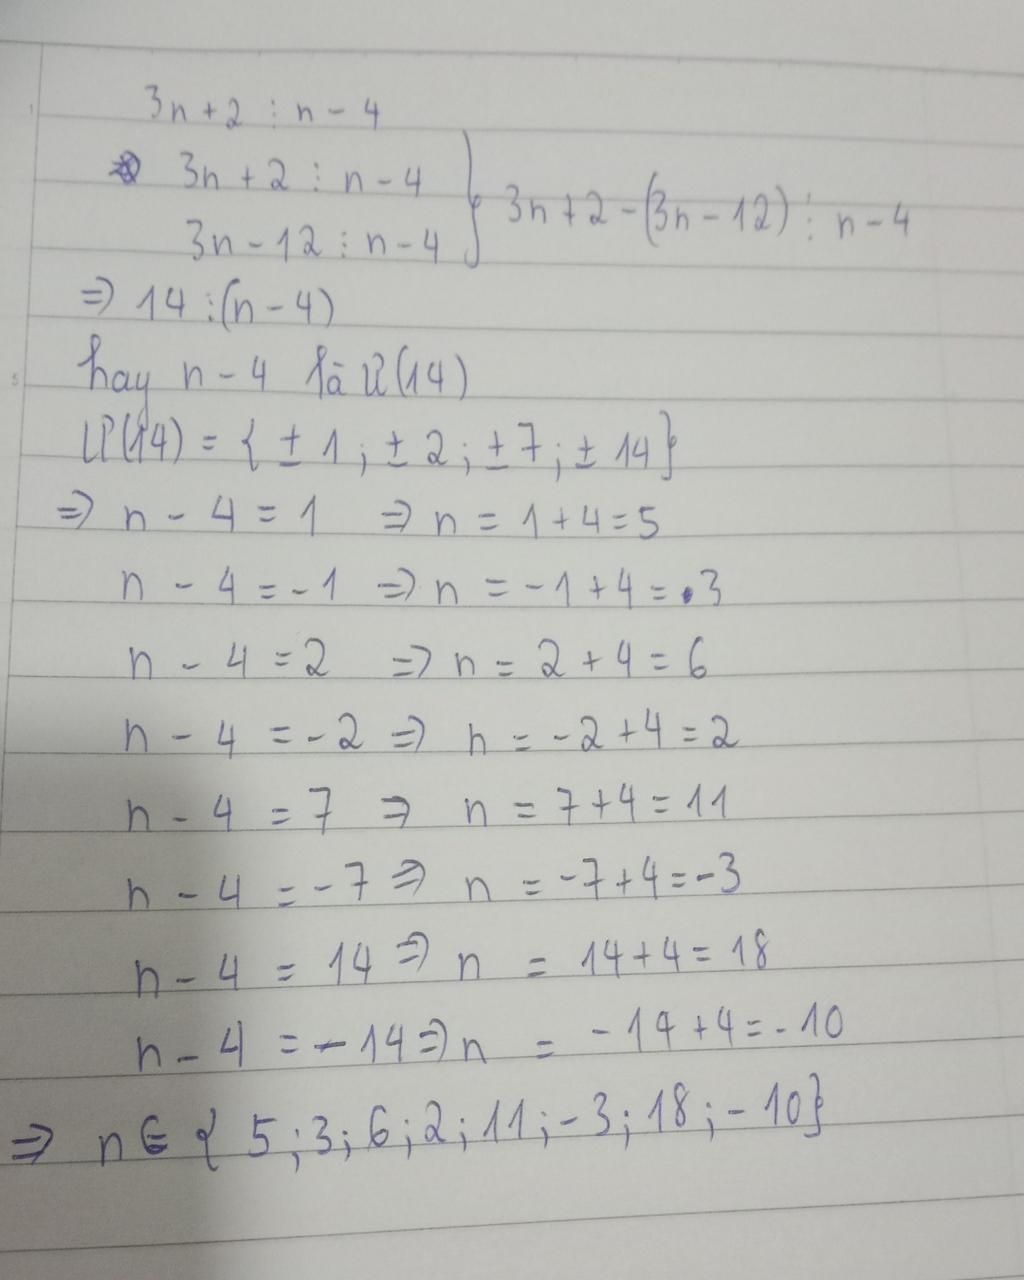 3n + 2 ⋮ n - 4
3n + 2 ⋮ n - 4
3n - 12 ⋮ n - 4 } 3n + 2 - (3n - 12) ⋮ n - 4
=> 14 ⋮ (n - 4)
hay n - 4 là Ư(14)
Ư(14) = { ± 1 ; ± 2 ; ± 7 ; ± 14 }
=> n - 4 = 1 => n = 1 + 4 = 5
n - 4 = - 1 => n = - 1 + 4 = 3
n - 4 = 2 => n = 2 + 4 = 6
n - 4 = - 2 => n = - 2 + 4 = 2
n - 4 = 7 => n = 7 + 4 = 11
n - 4 = - 7 => n = - 7 + 4 = - 3
n - 4 = 14 => n = 14 + 4 = 18
n - 4 = - 14 => n = - 14 + 4 = - 10
=> n ∈ { 5 ; 3 ; 6 ; 2 ; 11 ; - 3 ; 18 ; - 10 }